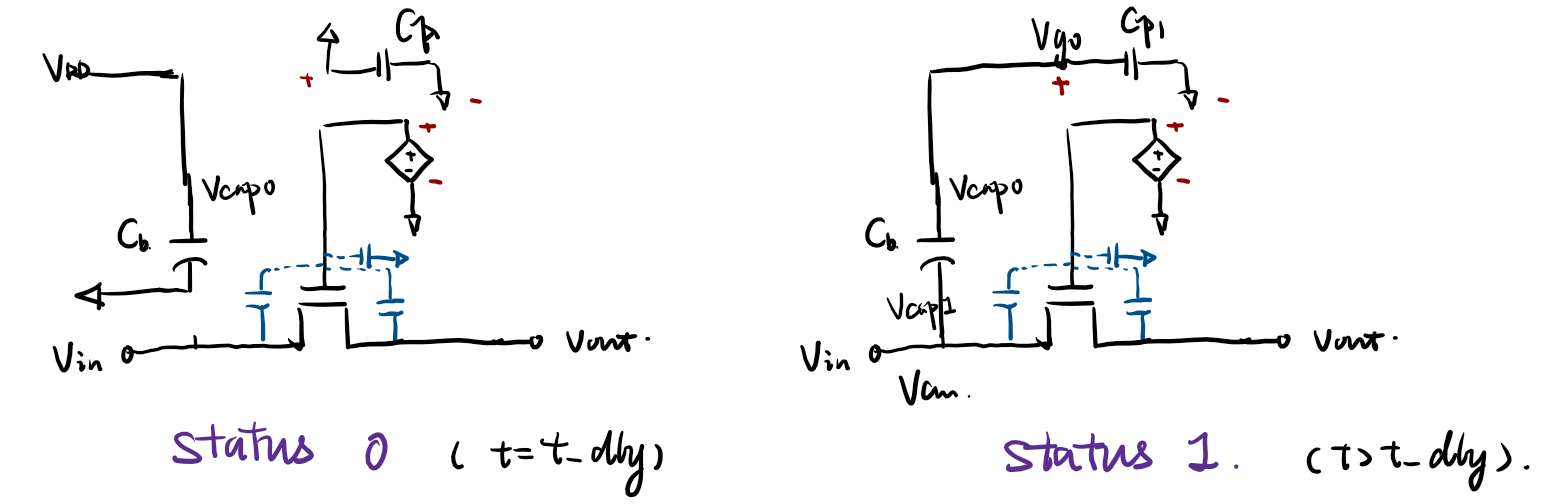 Cp1
VDD
+
-
+
+
-
-
Vcap0
Cb.
Vin
Vout.
status 0 (t=t_dly)
Vg0
Cp1
+
-
+
+
-
-
Vcap0
Cb.
Vcap1
Vin
Vout.
Vcm.
status 1. (t>t_dly).